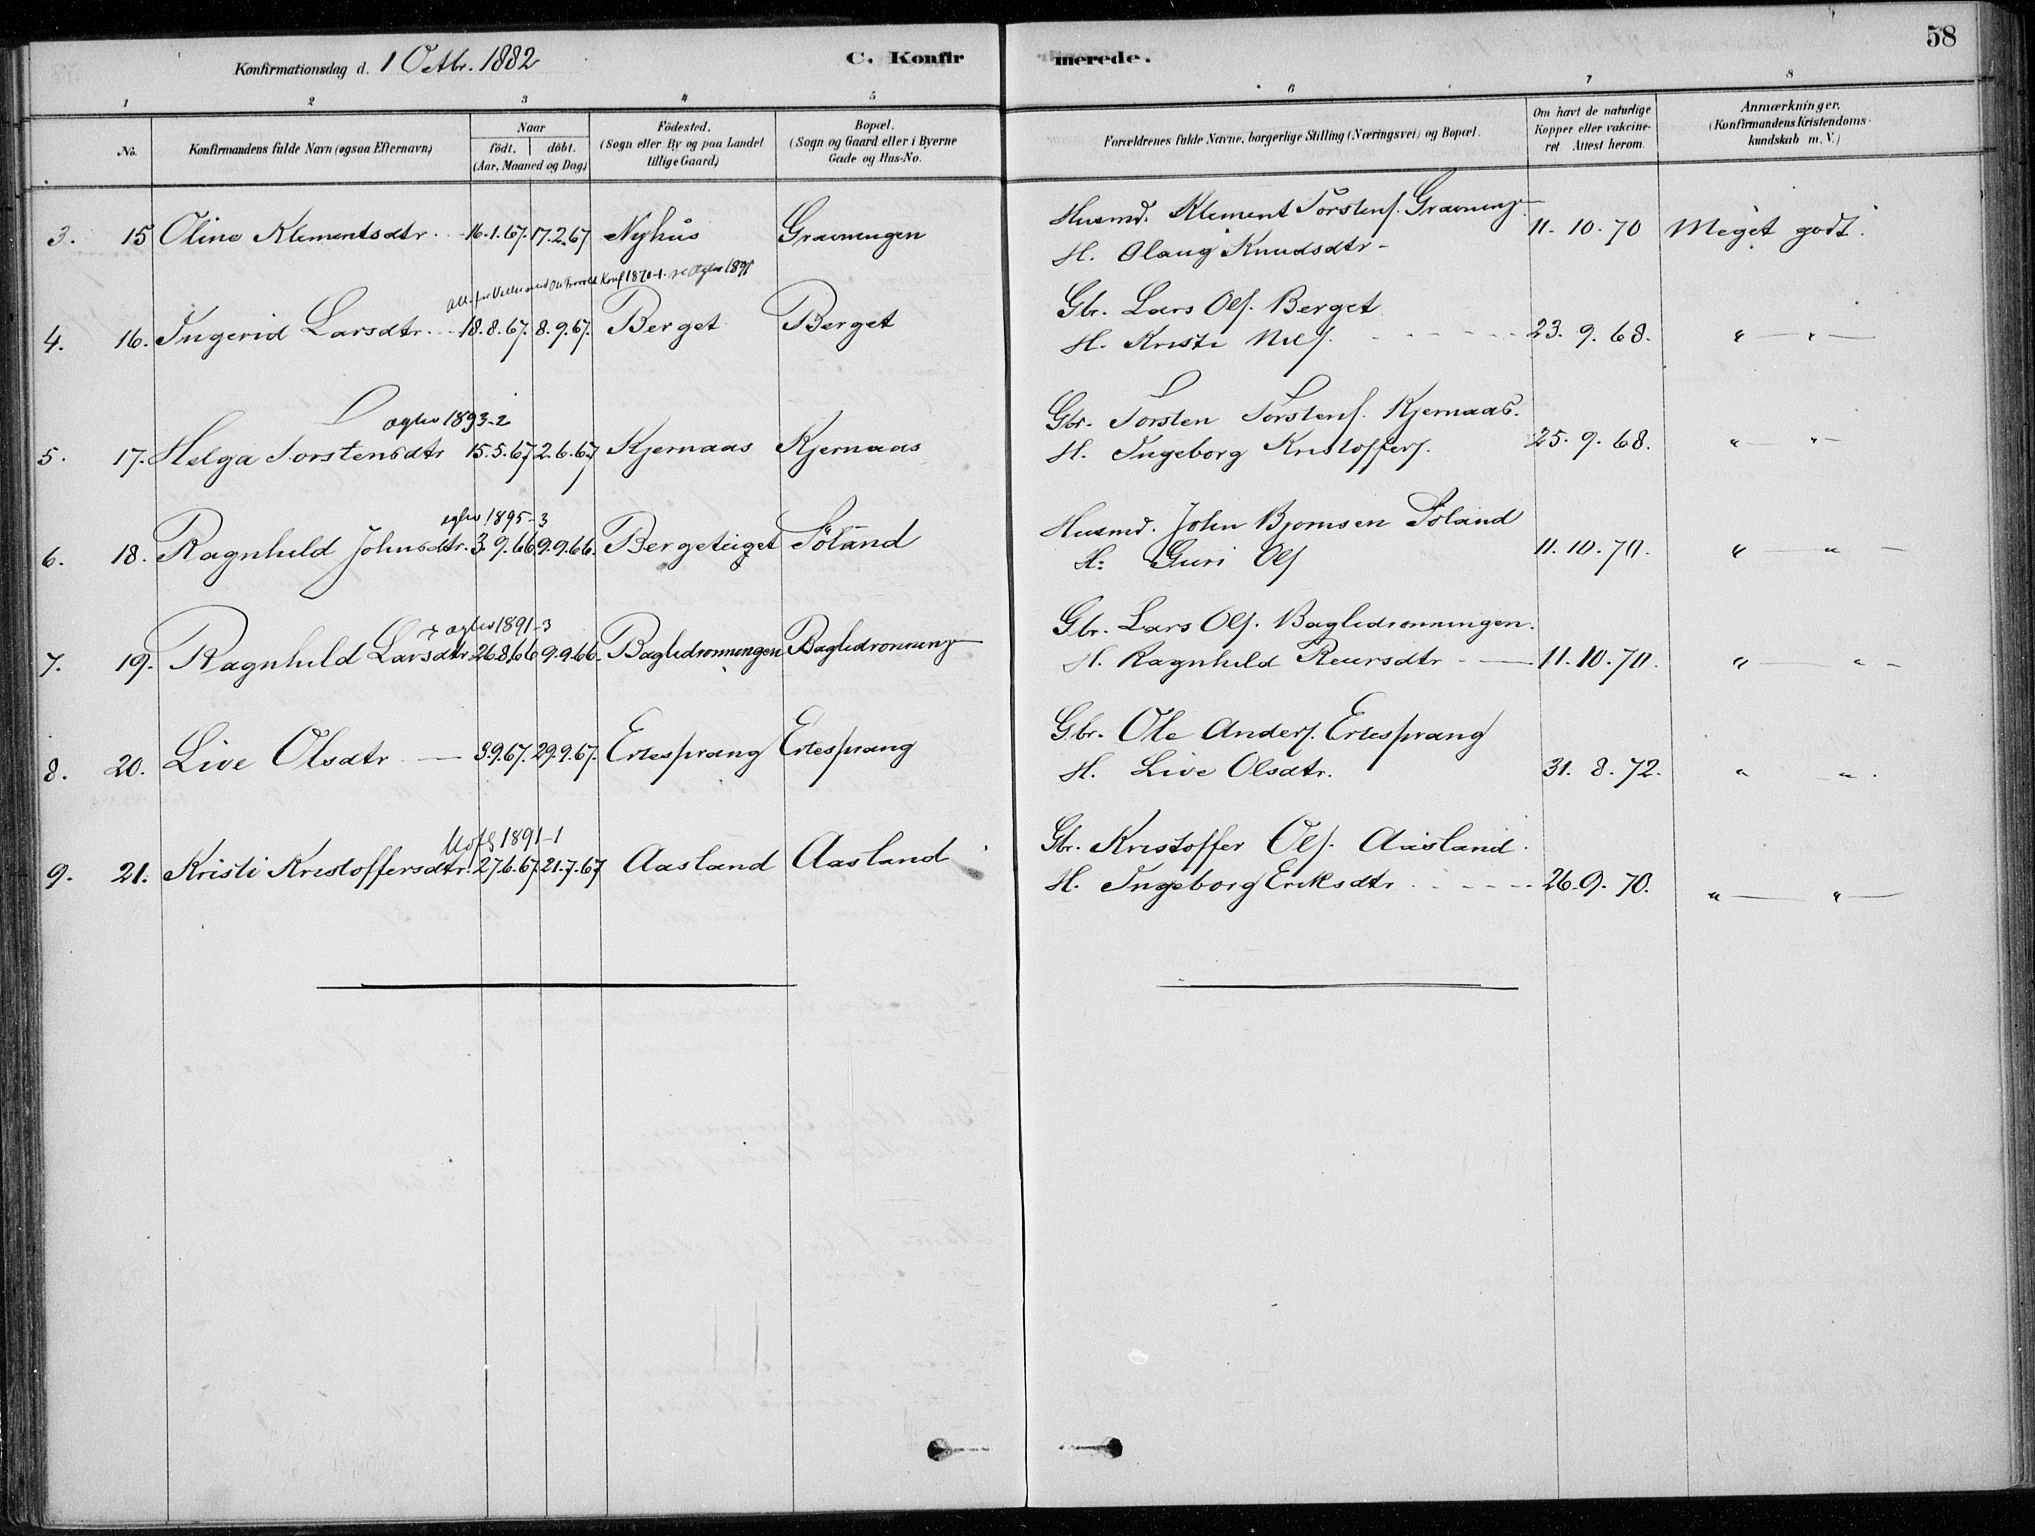 58
Konfirmationsdag d. 1 Octbr. 1882
C. Konfirmerede.
1 2 3 4 5 6 7 8
No.
Konfirmandens fulde Navn (ogsaa Efternavn)
Naar
födt. döbt.
(Aar, Maaned og Dag)
Födested.
(Sogn eller By og paa Landet
tillige Gaard)
Bopæl.
(Sogn og Gaard eller i Byerne
Gade og Hus-No.
Forældrenes fulde Navne, borgerlige Stilling (Næringsvei) og Bopæl.
Om havt de naturlige
Kopper eller vakcine-
ret Attest herom.
Anmærkninger,
(Konfirmandens Kristendoms-
kundskab m. V.)
3. 15 Oline Klementsdtr. 16.1.67. 17.2.67 Nyhus Gravningen Husmd. Klement Torstens. Gravning 11. 10. 70 Meget godt.
H. Olaug Knudsdtr
Konf 1870-1 1891
4. 16. Ingerid Larsdtr. 18.8.67. 8.9.67. Berget Berget Gbr. Lars Ols. Berget
H. Kristi Nils. 23. 9. 68. " "
ægtev 1893-2
5. 17. Helga Torstensdtr 15.5.67. 2.6.67 Kjernaas Kjernaas Gbr. Torsten Torstens. Kjernaas.
H. Ingeborg Kristoffers. 25. 9. 68. " "
egtev 1895-3
6. 18. Ragnhild Johnsdtr. 3.9.66. 9.9.66. Bergeteiget Söland Husmd. John Bjornsen Söland
H: Guri Ols 11. 10. 70. " "
ægtev 1891-3
7. 19. Ragnhild Larsdtr. 26.8.66 9.9.66. Baglidronningen Baglidronning Gbr. Lars Ols. Baglidronningen.
H. Ragnhild Reiersdtr 11. 10. 70. " "
8. 20. Live Olsdtr 3.9.67. 29.9.67. Ertesprang Ertesprang Gbr. Ole Anders. Ertesprang
H. Live Olsdtr. 31. 8. 72. " "
1891-1
9. 21. Kristi Kristoffersdtr. 27.6.67. 21.7.67 Aasland Aasland Gbr. Kristoffer Ols. Aasland.
H. Ingeborg Eriksdtr 26. 9. 70. " "